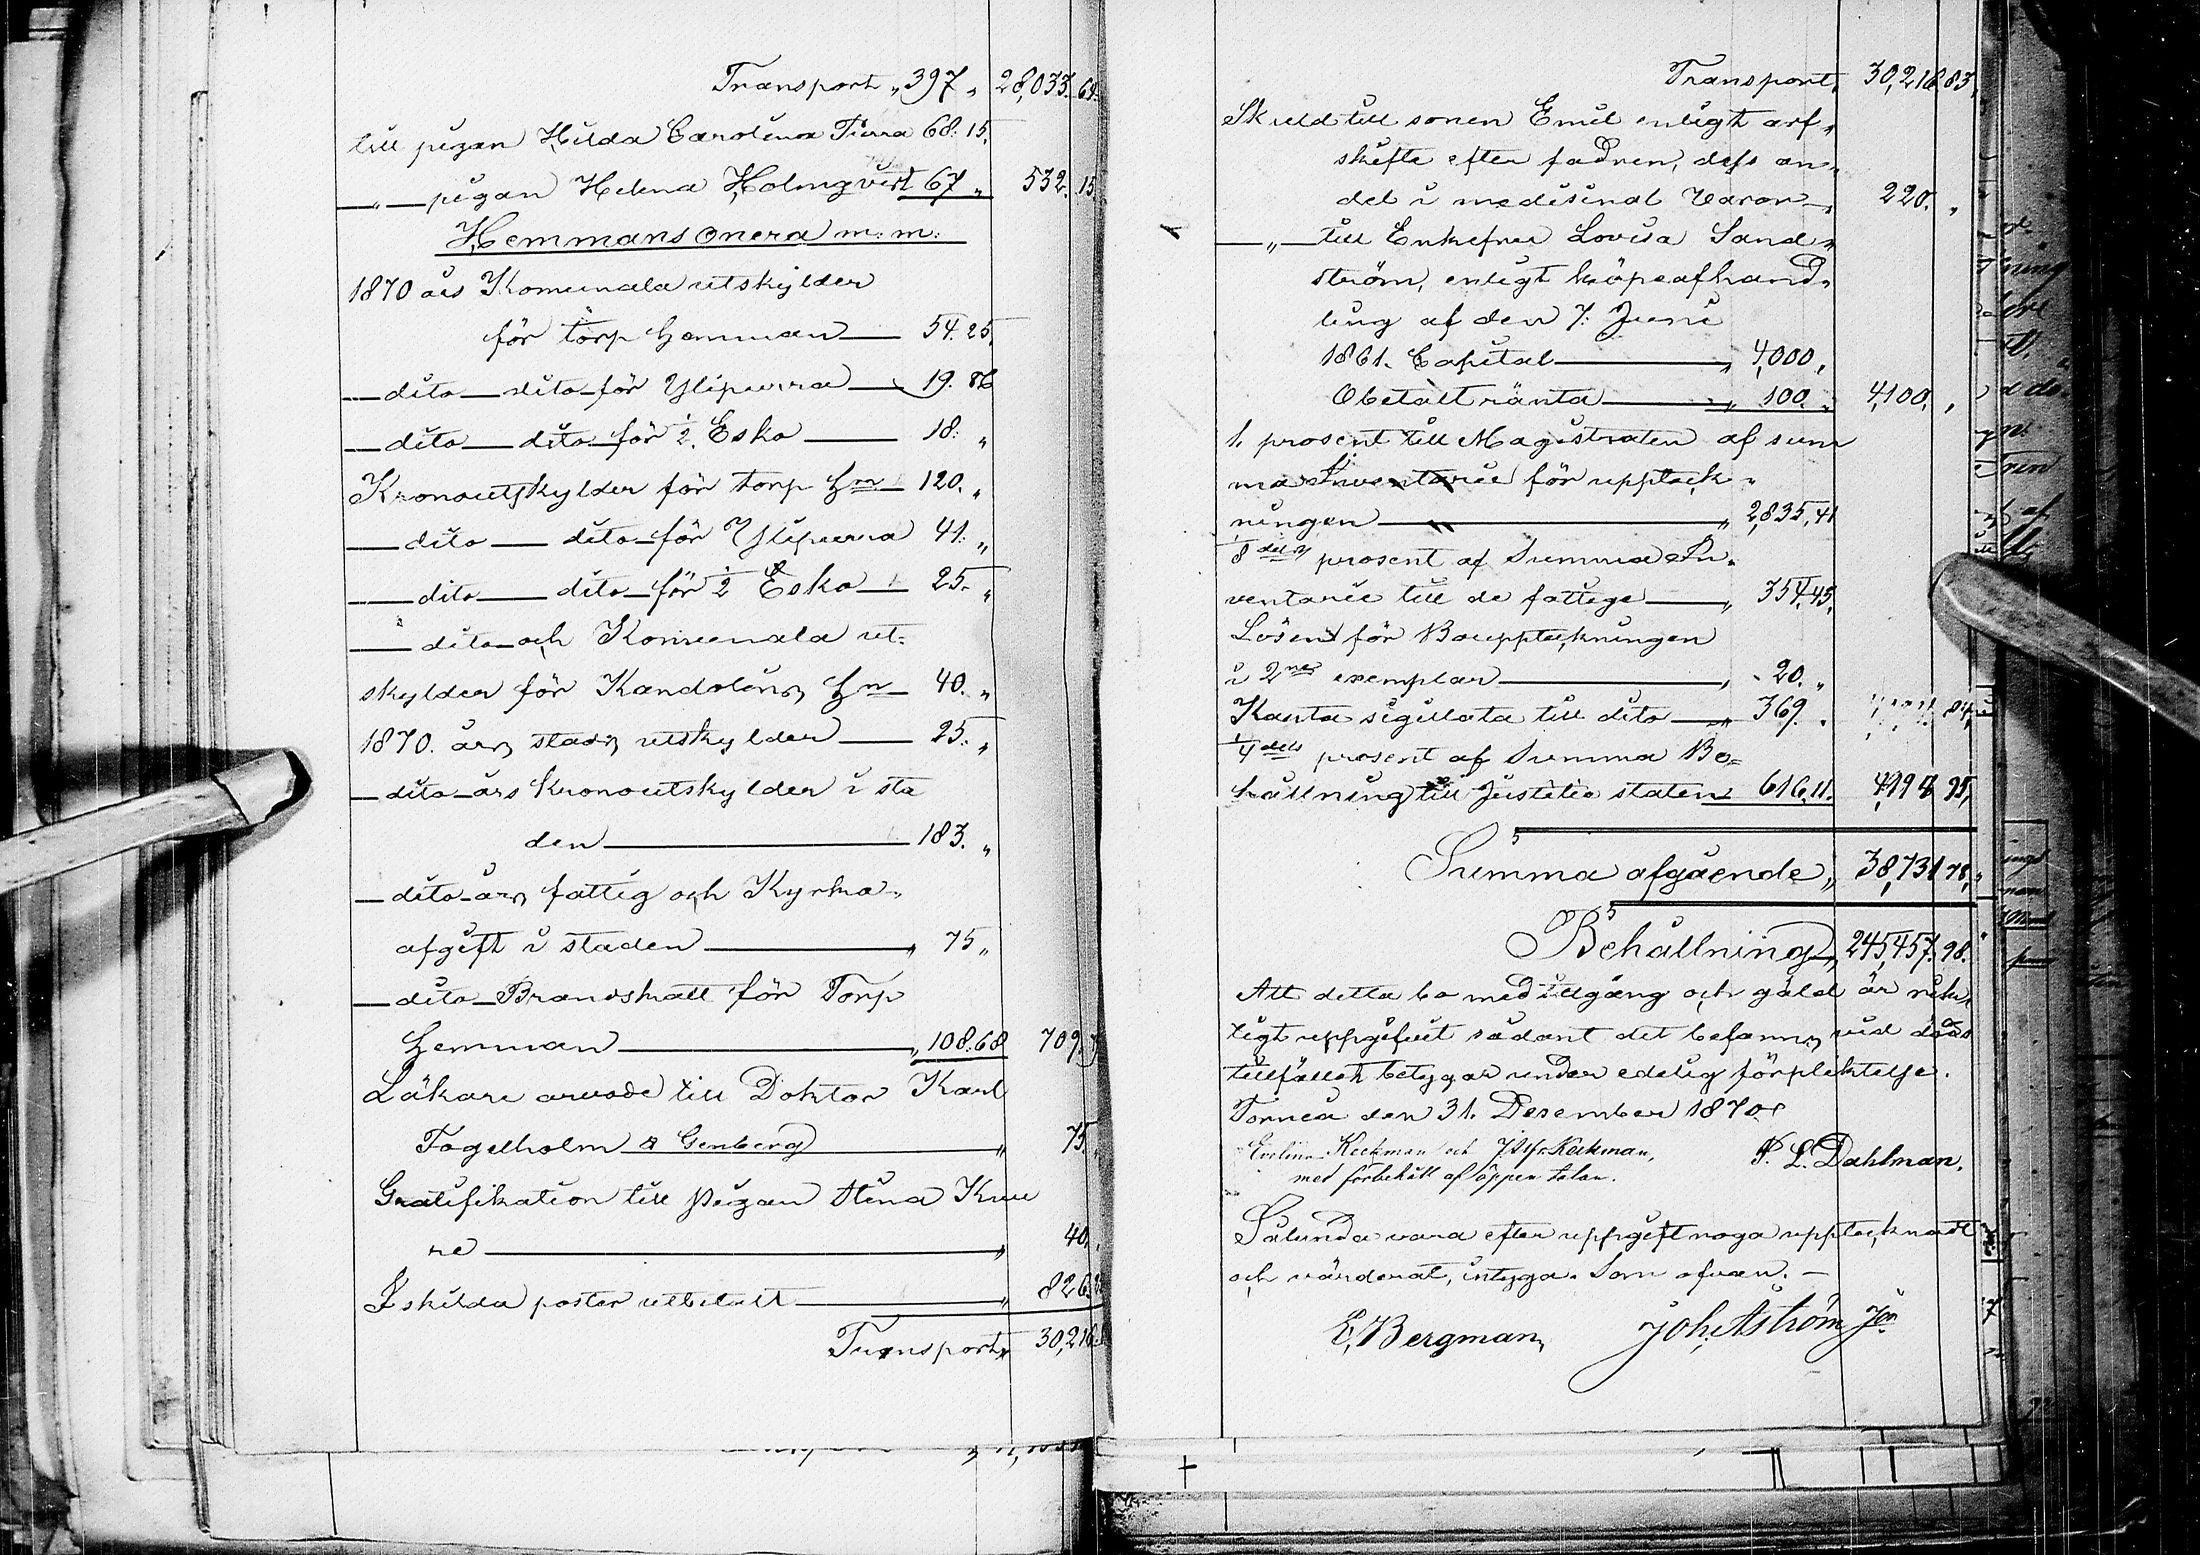 Transport „ 397 „ 28,033. 64.
till pigan Hilda Carolina Tiura 68. 15.
— „ — pigan Helena Holmqvist 67 „ 532. 15
Hemmans Onera m: m:
1870 års Komunala utskylder
för torp hemman — 54. 25.
— dito — dito för Ylipurra — 19. 86
— dito — dito för ½ Esko — 18. „
Kronoutskylder för torp hn — 120. „
— dito — dito för Ylipurra 41. „
— dito — dito för ½ Esko — 25. „
— dito och Komunala ut-
skylder för Kandolins hn — 40. „
1870. års stads utskylder — 25. „
— dito års kronoutskylder i sta
den — 183. „
— dito års fattig och Kyrko-
afgift i staden — „ 75 „
— dito Brandskatt för Torp
hemman — „ 108. 68 709.
Läkare arvode till Doktor Karl
Fogelholm & Genberg — „ 75.
Gratifikation till Pigan Stina Kuu
re — „ 40.
I skilda poster utbetalt — „ 826.
Transport „ 30,216.
Transport „ 30,216 83.
Skuld till sonen Emil enligt arf-
skifte efter fadren, dess an-
del i medisinal varor — „ 220. „
— „ — till Enkefru Lovisa Sand-
ström, enligt köpeafhand-
ling af den 7. Juni
1861. Capital — „ 4,000 „
Obetalt ränta — „ 100. „ 4,100. „
1. prosent till Magistraten af sum
ma Inventarii för uppteck-
ningen — „ 2,835, 41
1/8 dels prosent af Summa In-
ventarii till de fattige — „ 354, 45.
Lösen för Bouppteckningen
i 2ne exemplar — „ 20. „
Karta sigillata till dito — „ 369. „
1/4 dels prosent af Summa Be-
hållning till Justitie staten „ 616, 11. 4,194 95,
Summa afgående „ 38,731 78,
Behållning „ 245,457. 98.
Att detta bo med tillgång och gäld är rik-
tigt uppgifvit sådant det befanns vid döds
tillfället betygar under edelig förpliktelse.
Torneå den 31. Desember 1870.
Evelina Keckman och J. Alfr. Keckman, P. L. Dahlman.
med förbehåll af öppen talan.
Sålunda vara efter uppgift noga upptecknadt
och värderat, intyga. Som ofvan. —
E. Bergman, Joh. Åström Jon